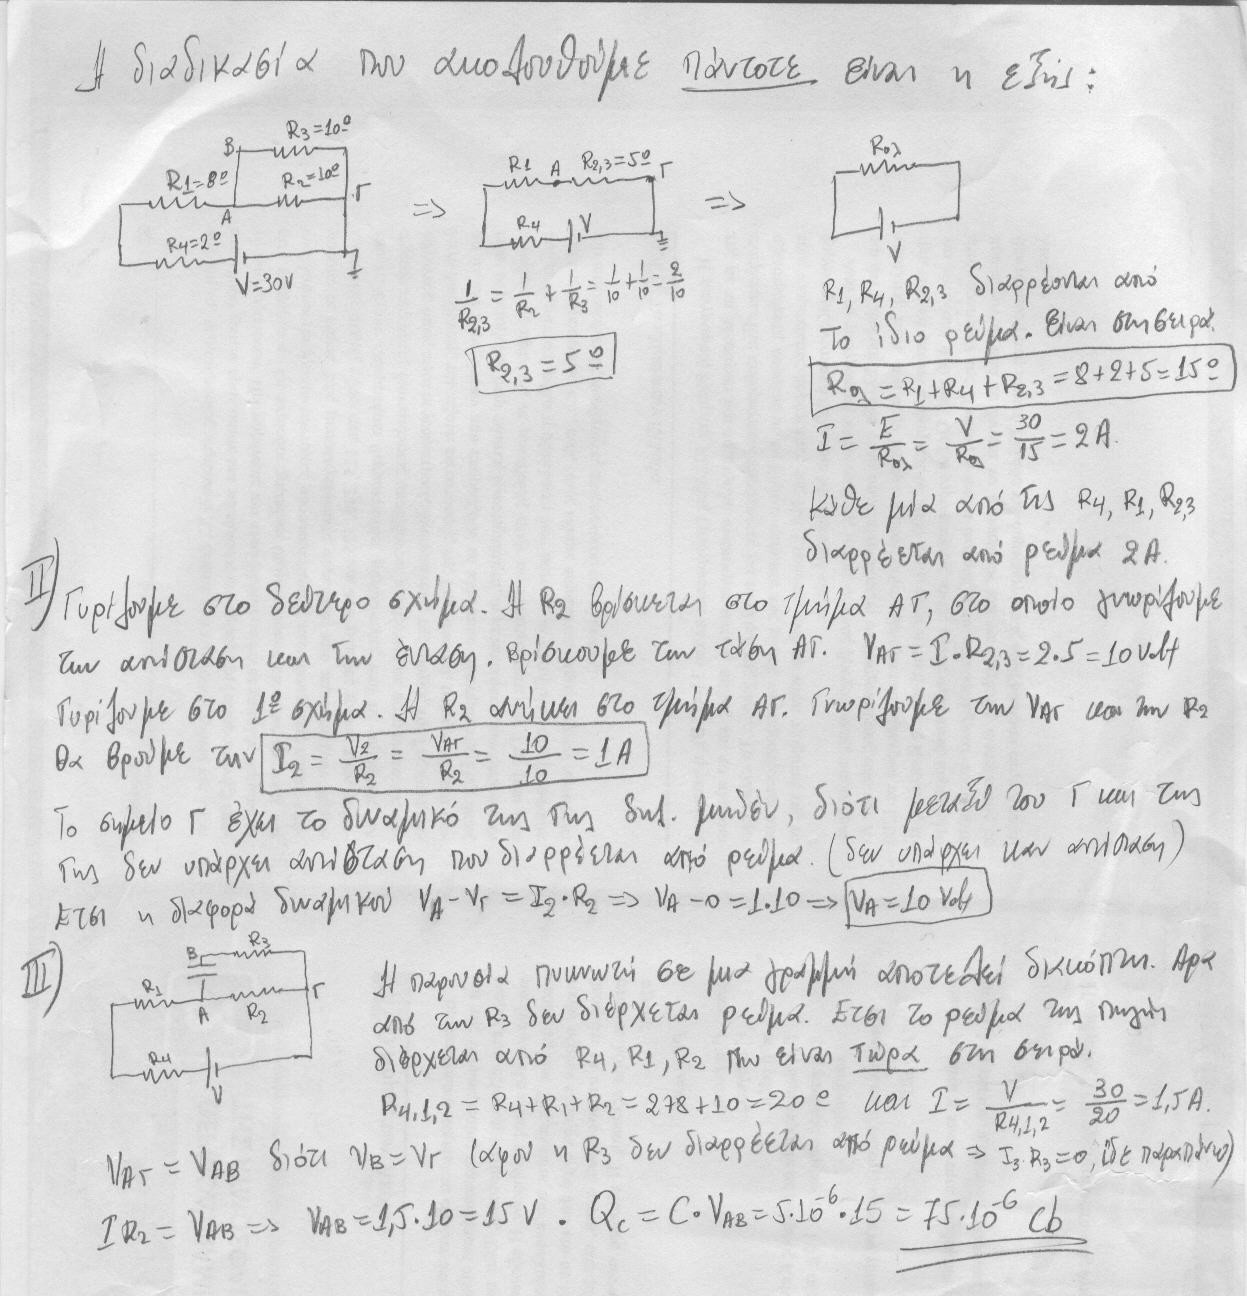 Η διαδικασία που ακολουθούμε πάντοτε είναι η εξής:
R3=10Ω
B
R1=8Ω
R2=10Ω
A
Γ
R4=2Ω
V=30V
=>
R1
A
R2,3=5Ω
Γ
R4
V
1/R2,3 = 1/R2 + 1/R3 = 1/10 + 1/10 = 2/10
R2,3 = 5Ω
=>
Rολ
V
R1, R4, R2,3 διαρρέονται από
το ίδιο ρεύμα. Είναι στη σειρά.
Rολ = R1+R4+R2,3 = 8+2+5 = 15Ω
I = E/Rολ = V/Rολ = 30/15 = 2A.
Κάθε μία από τις R4, R1, R2,3
διαρρέεται από ρεύμα 2A.
II) Γυρίζουμε στο δεύτερο σχήμα. Η R2 βρίσκεται στο τμήμα ΑΓ, στο οποίο γνωρίζουμε
την αντίσταση και την ένταση. Βρίσκουμε την τάση ΑΓ. VΑΓ = I·R2,3 = 2·5 = 10 Volt
Γυρίζουμε στο 1º σχήμα. Η R2 ανήκει στο τμήμα ΑΓ. Γνωρίζουμε την VΑΓ και την R2
θα βρούμε την I2 = V2/R2 = VΑΓ/R2 = 10/10 = 1A
Το σημείο Γ έχει το δυναμικό της Γης δηλ. μηδέν, διότι μεταξύ του Γ και της
Γης δεν υπάρχει αντίσταση που διαρρέεται από ρεύμα. (δεν υπάρχει καν αντίσταση)
Ετσι η διαφορά δυναμικού VA-VΓ = I2·R2 => VA-0=1·10 => VA=10 Volt
III)
B
R3
R1
Γ
A
R2
R4
V
Η παρουσία πυκνωτή σε μια γραμμή αποτελεί διακόπτη. Αρα
από την R3 δεν διέρχεται ρεύμα. Ετσι το ρεύμα της πηγής
διέρχεται από R4, R1, R2 που είναι τώρα στη σειρά.
R4,1,2 = R4+R1+R2 = 2+8+10 = 20Ω και I = V/R4,1,2 = 30/20 = 1,5A.
VΑΓ = VAB διότι VB=VΓ (αφού η R3 δεν διαρρέεται από ρεύμα => I3·R3=0, ίδε παραπάνω)
IR2 = VAB => VAB = 1,5·10 = 15V. Qc = C·VAB = 5·10⁻⁶·15 = 75·10⁻⁶ cb